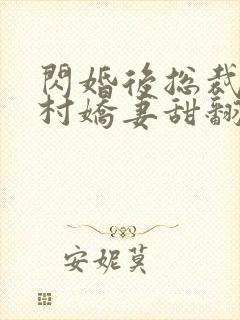 閃婚後總裁
村嬌妻甜翻
安妮莫